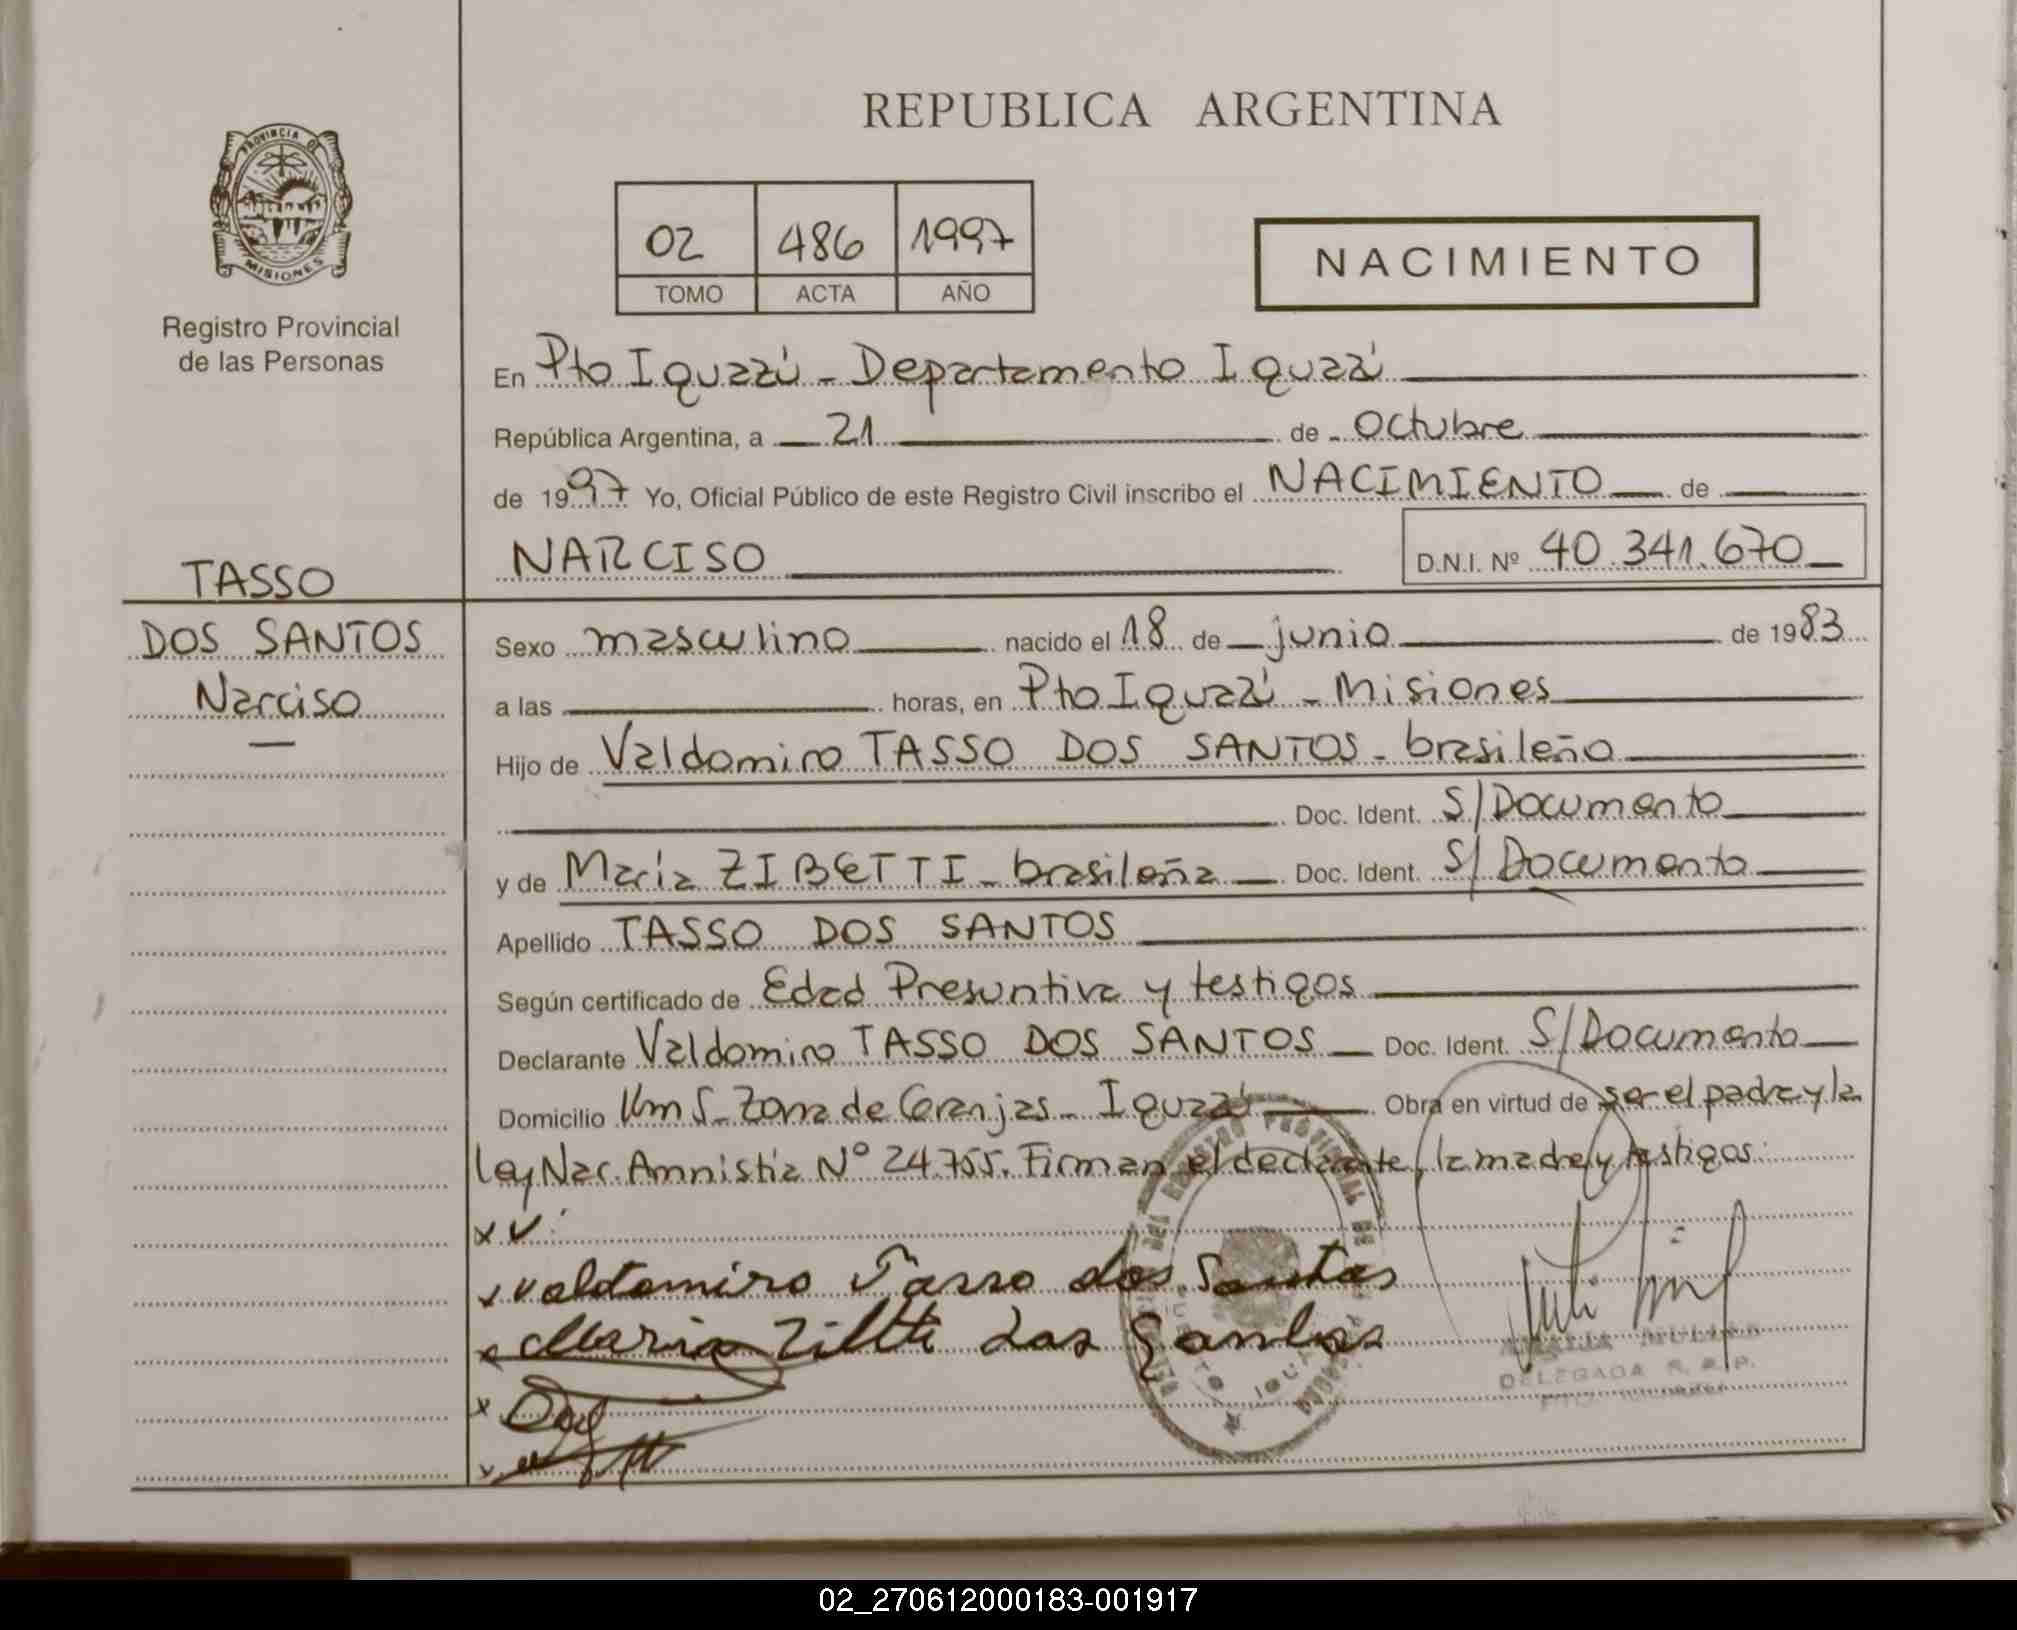 REPUBLICA ARGENTINA
PROVINCIA DE MISIONES
Registro Provincial
de las Personas
02 486 1997
TOMO ACTA AÑO
NACIMIENTO
En Pto Iguazú - Departamento Iguazú
República Argentina, a 21 de Octubre
de 1997 Yo, Oficial Público de este Registro Civil inscribo el NACIMIENTO de
NARCISO D.N.I. Nº 40.341.670
TASSO
DOS SANTOS
Narciso
Sexo masculino nacido el 18 de junio de 1983
a las horas, en Pto Iguazú - Misiones
Hijo de Valdomiro TASSO DOS SANTOS - brasileño
Doc. Ident. S/Documento
y de María ZIBETTI - brasileña Doc. Ident. S/Documento
Apellido TASSO DOS SANTOS
Según certificado de Edad Presuntiva y testigos
Declarante Valdomiro TASSO DOS SANTOS Doc. Ident. S/Documento
Domicilio Km 5 - Zona de Granjas - Iguazú Obra en virtud de ser el padre y la
Ley Nac. Amnistía Nº 24.755. Firman el declarante, la madre y testigos.
x v
x Valdomiro Tasso dos Santos
x Maria Zibetti dos Santos
x
x
DELEGADA R. P. P.
02_270612000183-001917